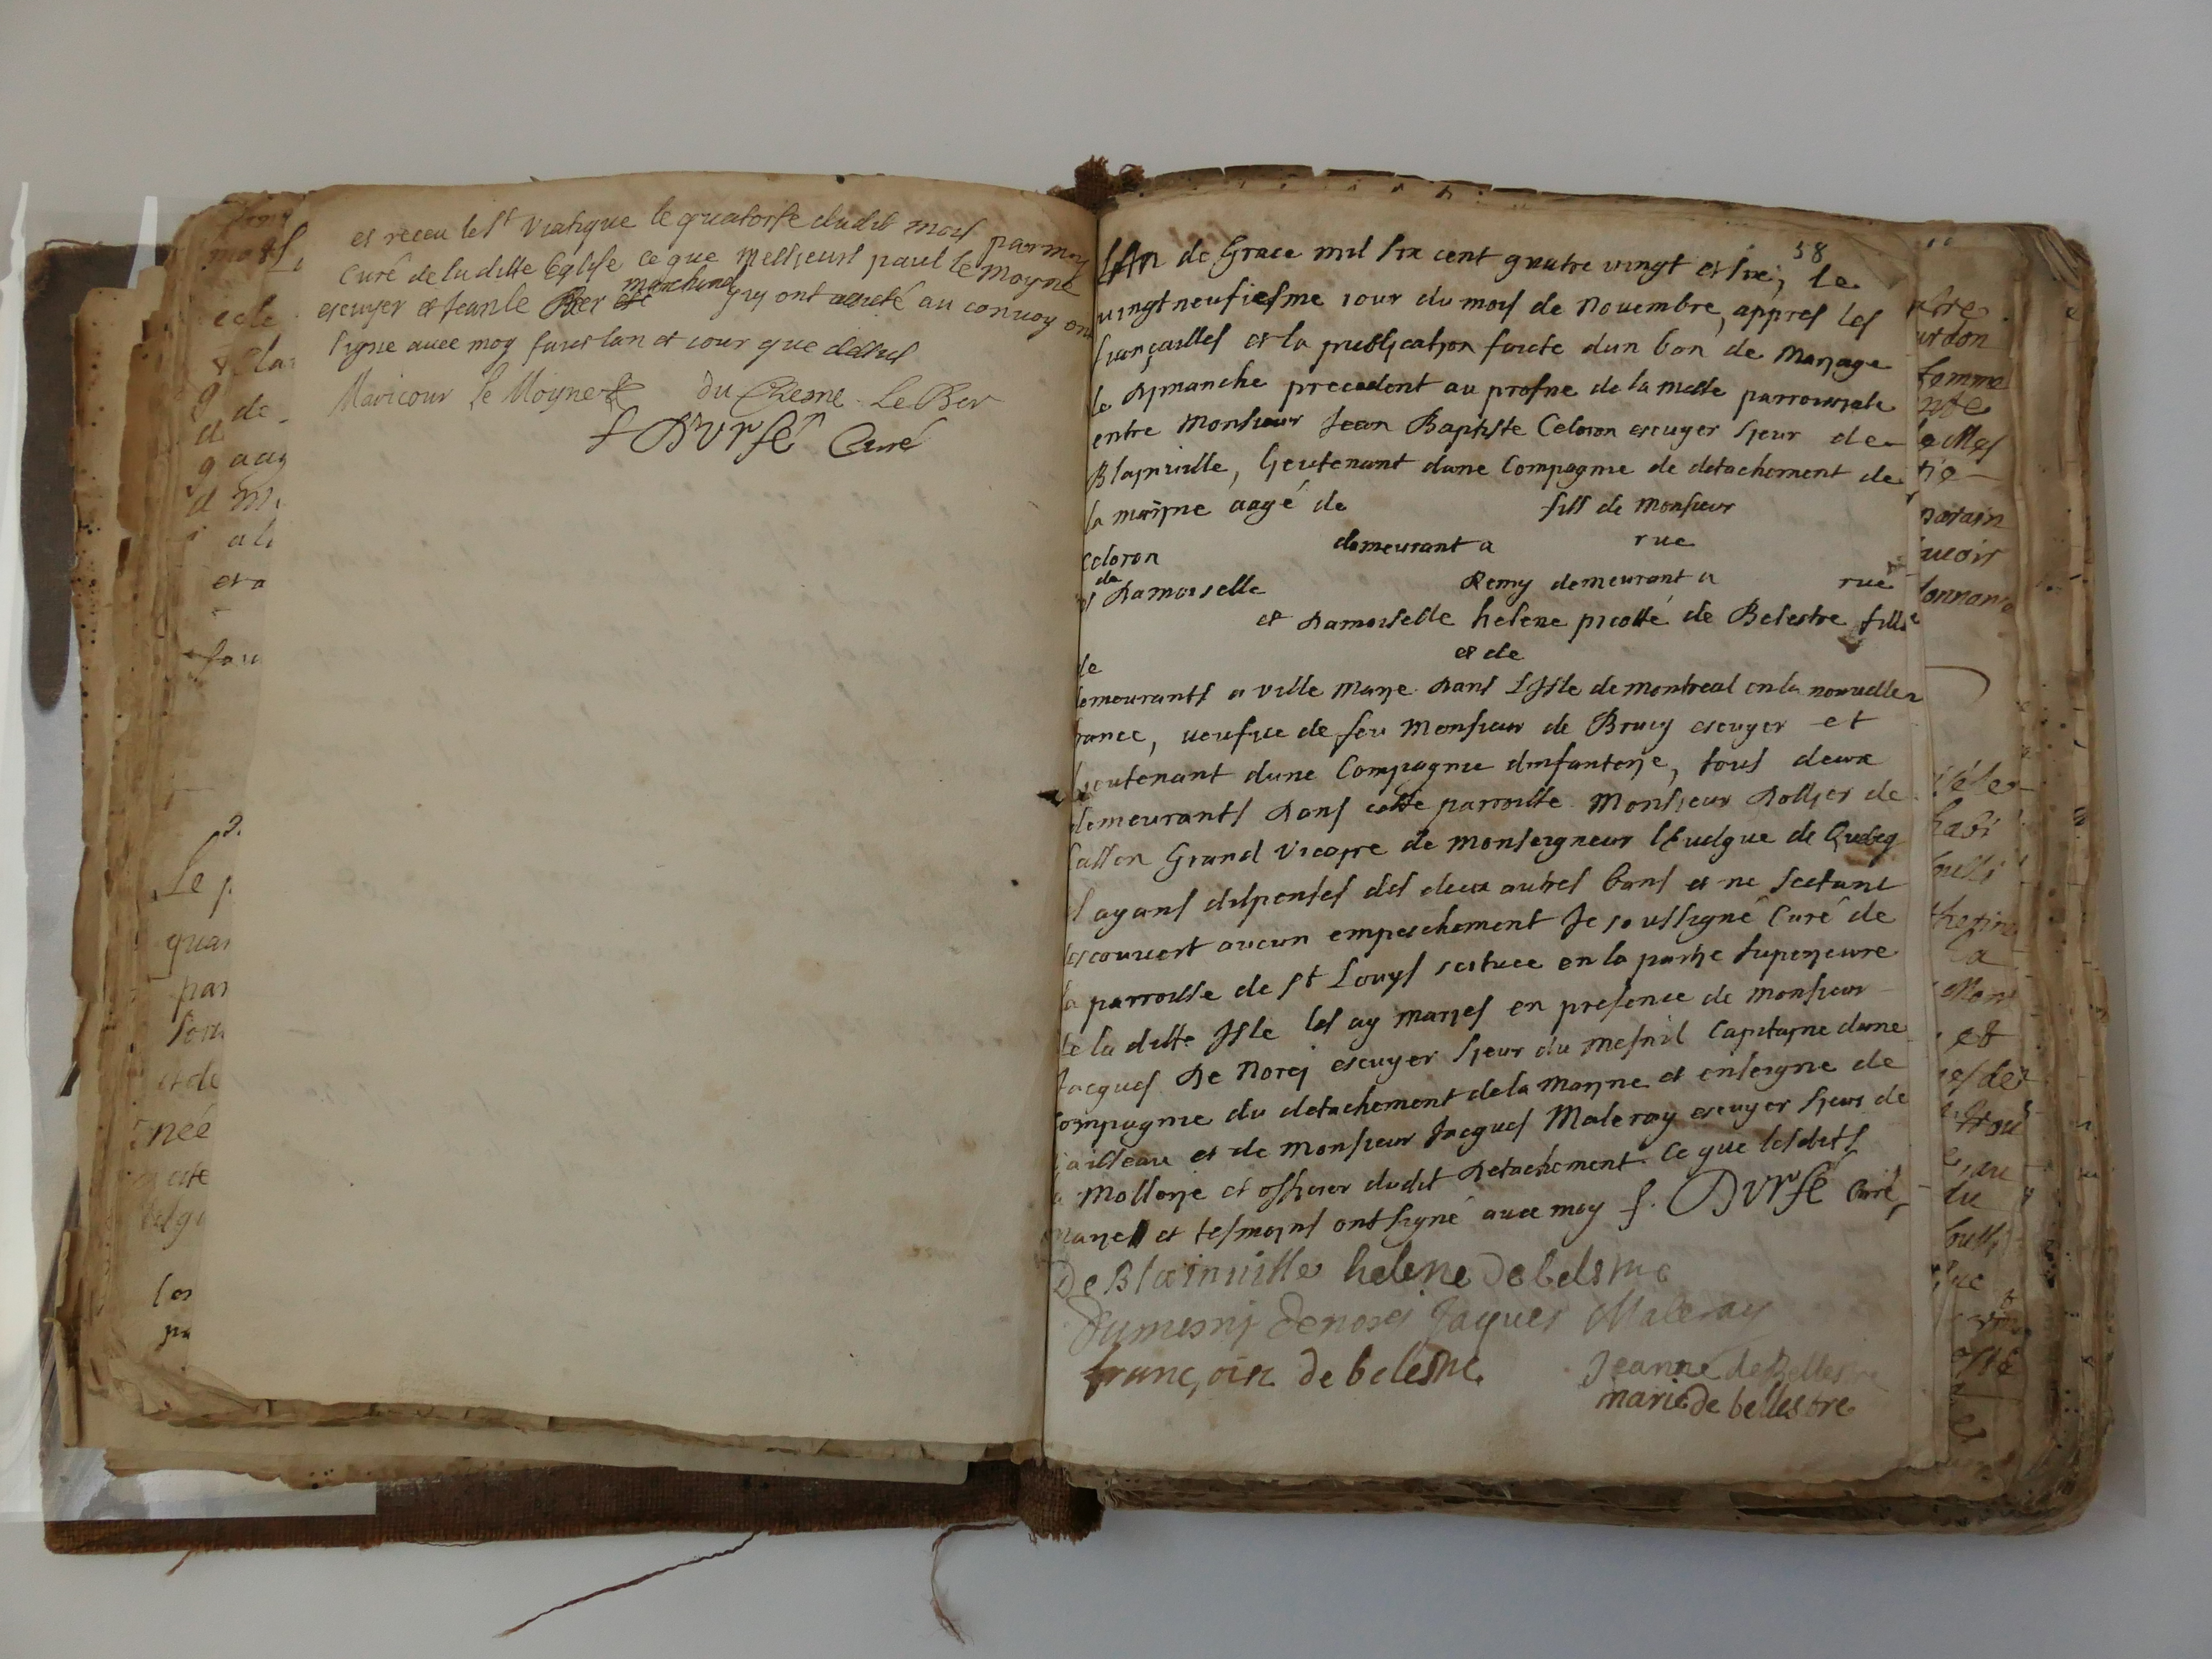 et receu le St Viatique le quatorse dudit mois par moy
Curé de laditte Eglise ce que Messieurs paul le moyne
escuyer et Jean le Ber marchand qui ont assisté au convoy ont
signé avec moy susdit an et iour que dessus
Maricour Le Moyne du Chesne Le Ber
f DVrfé Curé
58
L'An de Grace mil six cent quatre vingt et six, le
vingt neufiesme iour du mois de Novembre, appres les
fiançailles et la publication faicte dun ban de Mariage
le dymanche precedent au prosne de la messe parroissiale
entre Monsieur Jean Baptiste Celoron escuyer sieur de
Blainville, lieutenant dune Compagnie de detachement de
la marine aagé de fils de Monsieur
Celoron demeurant a rue
et de Damoiselle Remy demeurant a rue
et Damoiselle helene picotté de Belestre fille
de et de
demeurants a ville Marye dans L'Isle de montreal en la nouvelle
france, veufve de feu Monsieur de Brucy escuyer et
lieutenant dune Compagnie dinfanterie, tous deux
demeurants dans cette parroisse Monsieur Dollier de
Casson Grand Vicaire de monseigneur l'Evesque de Quebeq
les ayans dispenses des deux autres bans et ne sestant
descouvert aucun empeschement Je soussigné Curé de
la parroisse de St Louys scituee en la partie superieure
de la ditte Isle les ay mariés en presence de monsieur
Jacques De Norej escuyer sieur du Mesnil Capitayne dune
Compagnie du detachement de la Marine et enseigne de
vaisseau et de Monsieur Jacques Maleray escuyer sieur de
la Mollerie et officier dudit detachement. Ce que lesdits
Mariés et tesmoins ont signé avec moy f. DVrfé Curé
De Blainuille helene de belestre
Dumesnj denorej Jaques Maleray
françoise de belestre Jeanne de Bellestre
marie de bellestre